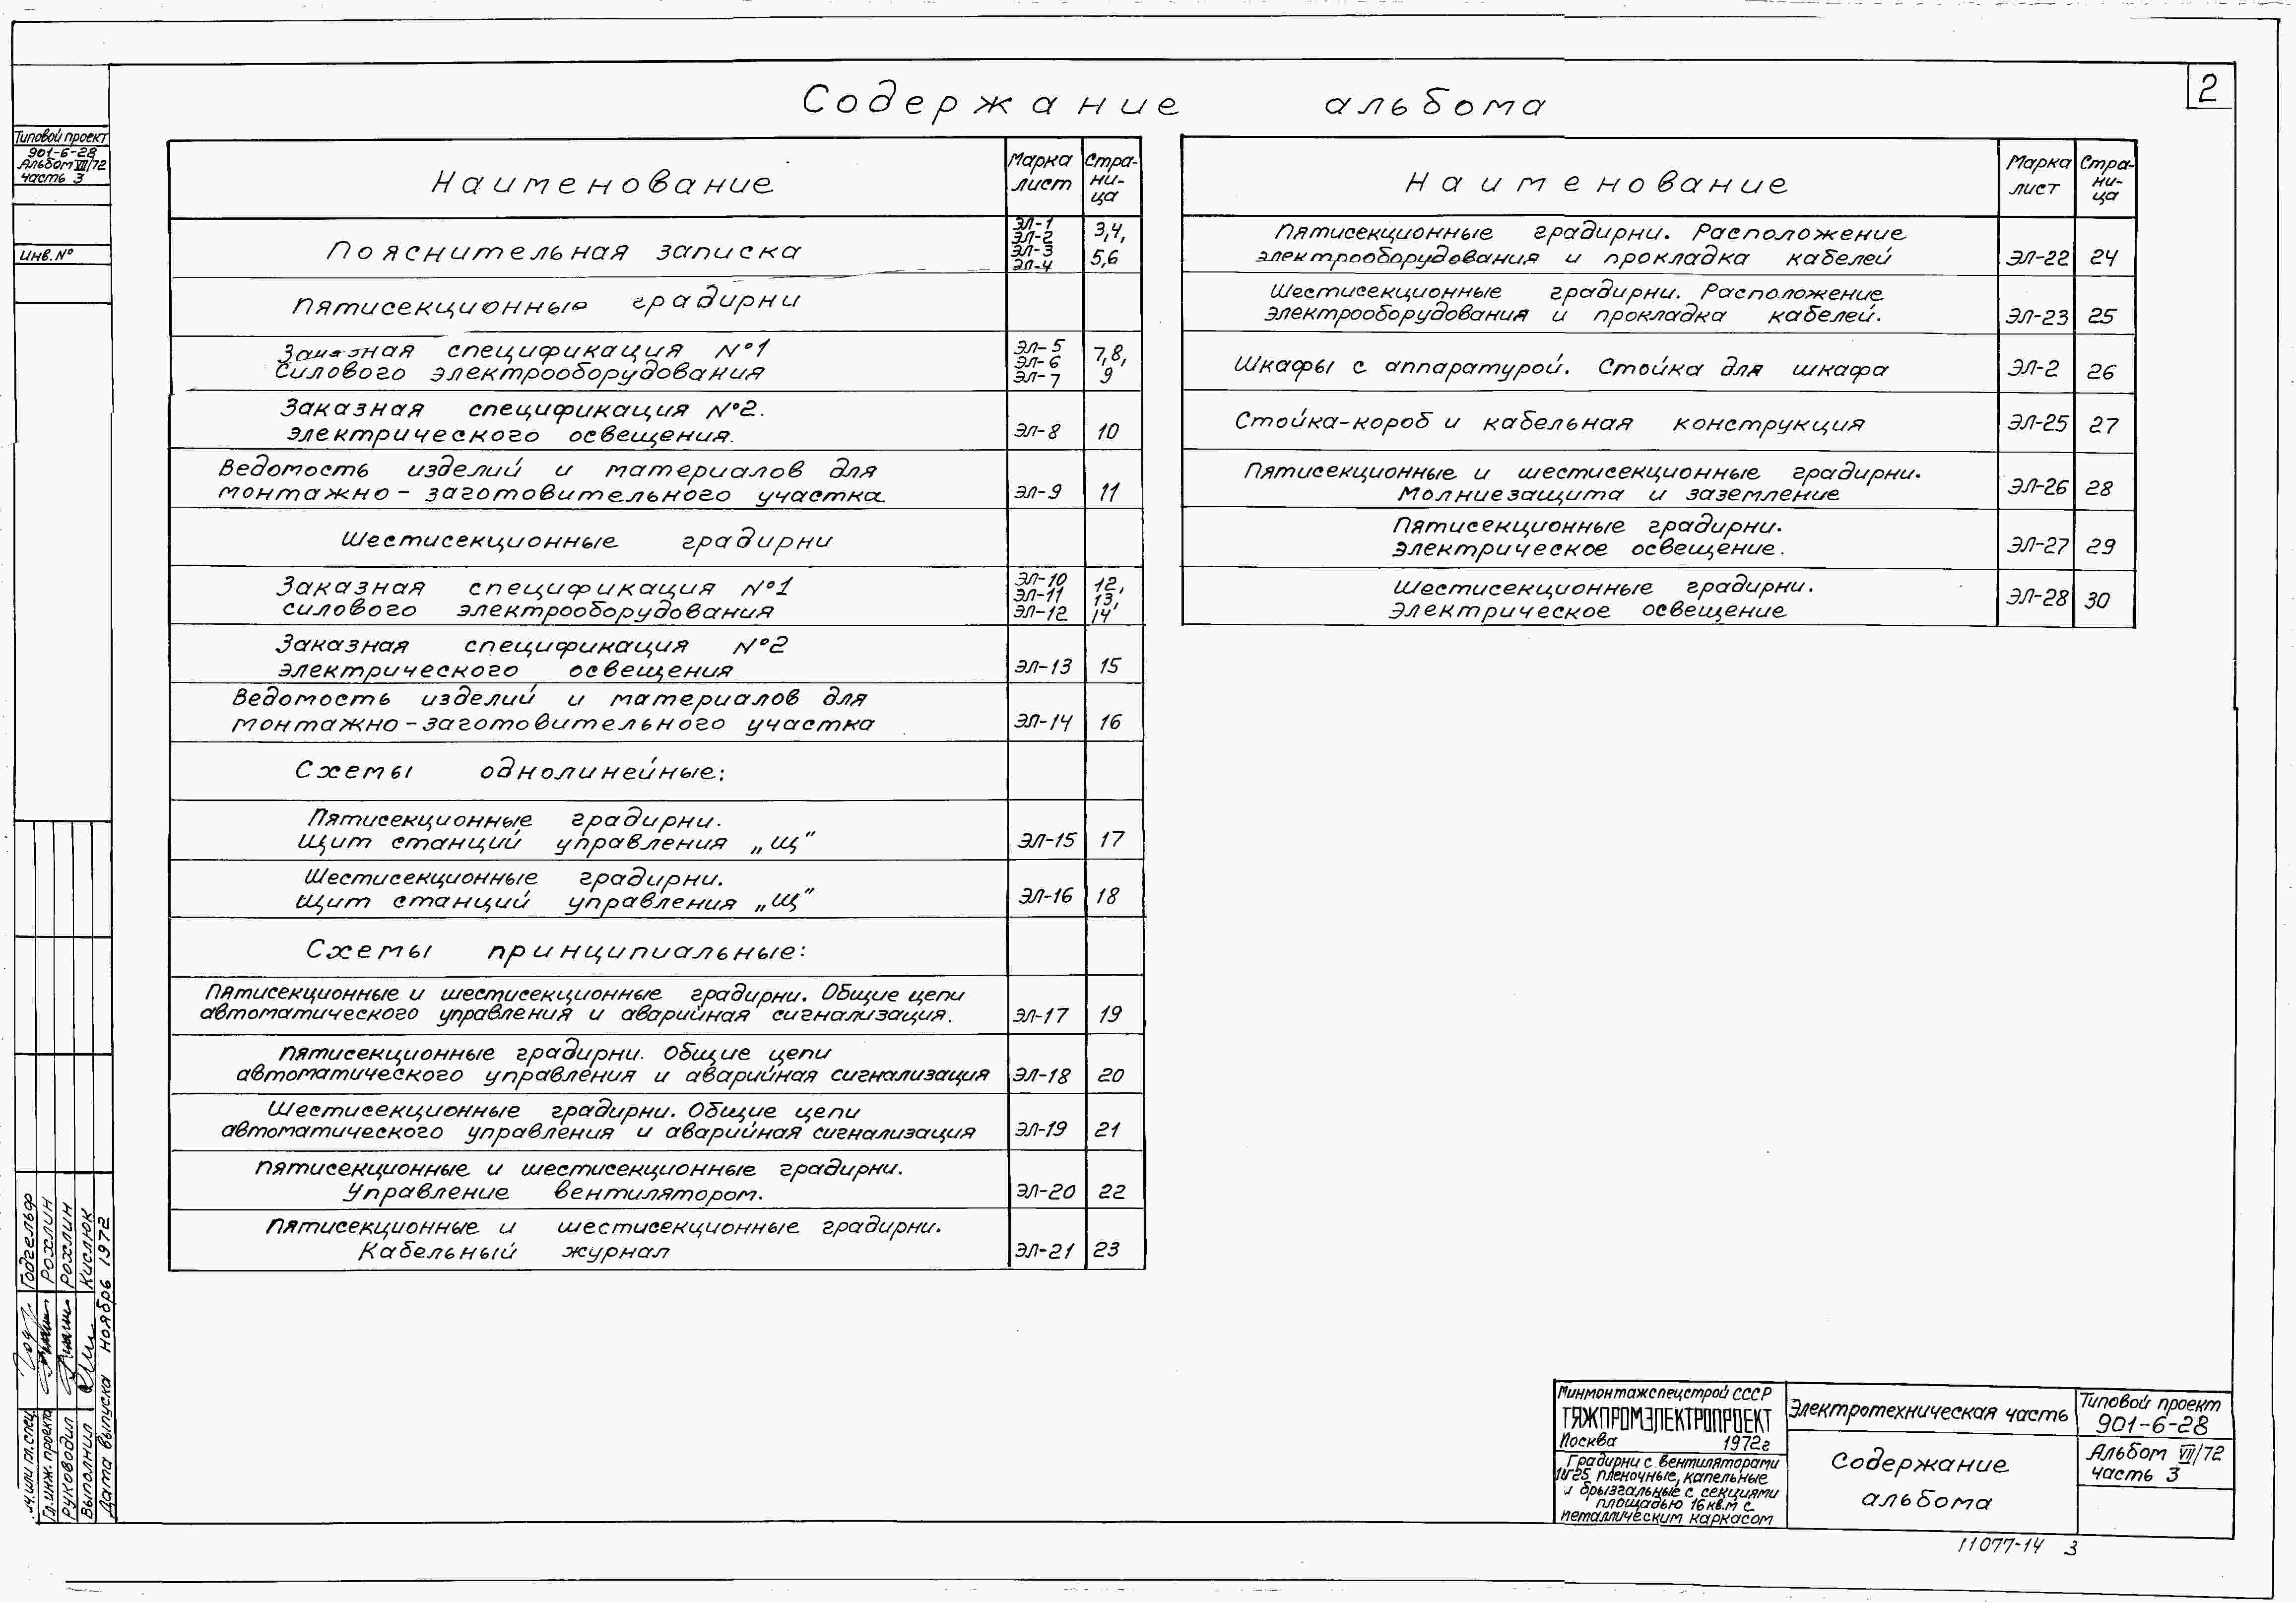 2
Содержание альбома
Типовой проект
901-6-28
Альбом VII/72
часть 3
Инв. №
Наименование
Марка лист
Стра-
ни-
ца
Пояснительная записка
ЭЛ-1
ЭЛ-2
ЭЛ-3
ЭЛ-4
3,4,
5,6
Пятисекционные градирни
Заказная спецификация №1
силового электрооборудования
ЭЛ-5
ЭЛ-6
ЭЛ-7
7,8,
9
Заказная спецификация №2.
электрического освещения.
ЭЛ-8 10
Ведомость изделий и материалов для
монтажно-заготовительного участка
ЭЛ-9 11
Шестисекционные градирни
Заказная спецификация №1
силового электрооборудования
ЭЛ-10
ЭЛ-11
ЭЛ-12
12,
13,
14
Заказная спецификация №2
электрического освещения
ЭЛ-13 15
Ведомость изделий и материалов для
монтажно-заготовительного участка
ЭЛ-14 16
Схемы однолинейные:
Пятисекционные градирни.
Щит станций управления „Щ"
ЭЛ-15 17
Шестисекционные градирни.
Щит станций управления „Щ"
ЭЛ-16 18
Схемы принципиальные:
Пятисекционные и шестисекционные градирни. Общие цепи
автоматического управления и аварийная сигнализация.
ЭЛ-17 19
Пятисекционные градирни. Общие цепи
автоматического управления и аварийная сигнализация
ЭЛ-18 20
Шестисекционные градирни. Общие цепи
автоматического управления и аварийная сигнализация
ЭЛ-19 21
Пятисекционные и шестисекционные градирни.
Управление вентилятором.
ЭЛ-20 22
Пятисекционные и шестисекционные градирни.
Кабельный журнал
ЭЛ-21 23
Наименование
Марка лист
Стра-
ни-
ца
Пятисекционные градирни. Расположение
электрооборудования и прокладка кабелей
ЭЛ-22 24
Шестисекционные градирни. Расположение
электрооборудования и прокладка кабелей.
ЭЛ-23 25
Шкафы с аппаратурой. Стойка для шкафа
ЭЛ-2 26
Стойка-короб и кабельная конструкция
ЭЛ-25 27
Пятисекционные и шестисекционные градирни.
Молниезащита и заземление
ЭЛ-26 28
Пятисекционные градирни.
Электрическое освещение.
ЭЛ-27 29
Шестисекционные градирни.
Электрическое освещение
ЭЛ-28 30
Гл. инж. проекта Рохлин
Руководил Рохлин
Выполнил Кислюк
Дата выпуска ноябрь 1972
Минмонтажспецстрой СССР
ТЯЖПРОМЭЛЕКТРОПРОЕКТ
Москва 1972г
Градирни с вентиляторами
1ВГ25 пленочные, капельные
и брызгальные с секциями
площадью 16 кв.м с
металлическим каркасом
Электротехническая часть
Содержание
альбома
Типовой проект
901-6-28
Альбом VII/72
часть 3
11077-14 3